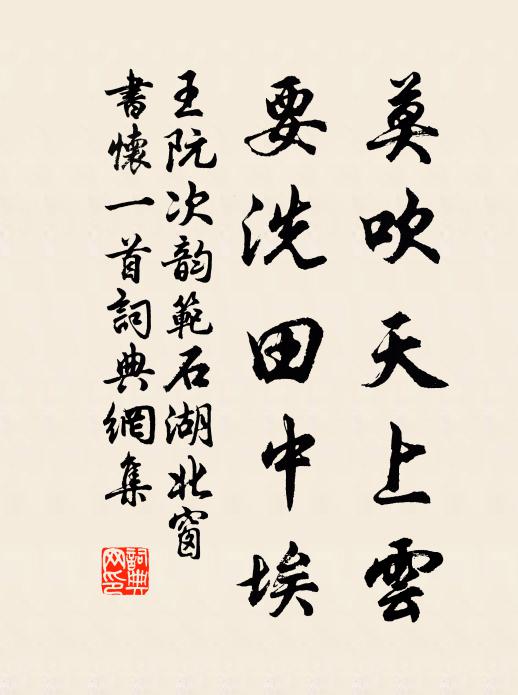 莫吹天上雲
要洗田中埃
王阮次韵範石湖北窗
書懷一首詞典網集
詞典网印